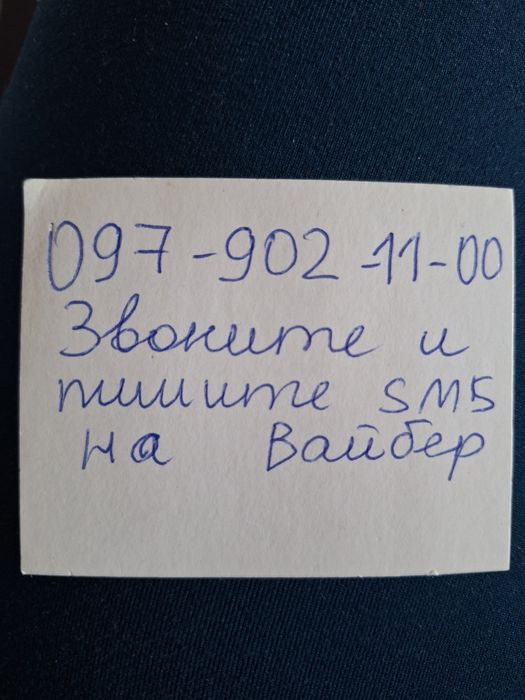 097-902-11-00
Звоните и
пишите SMS
на Вайбер